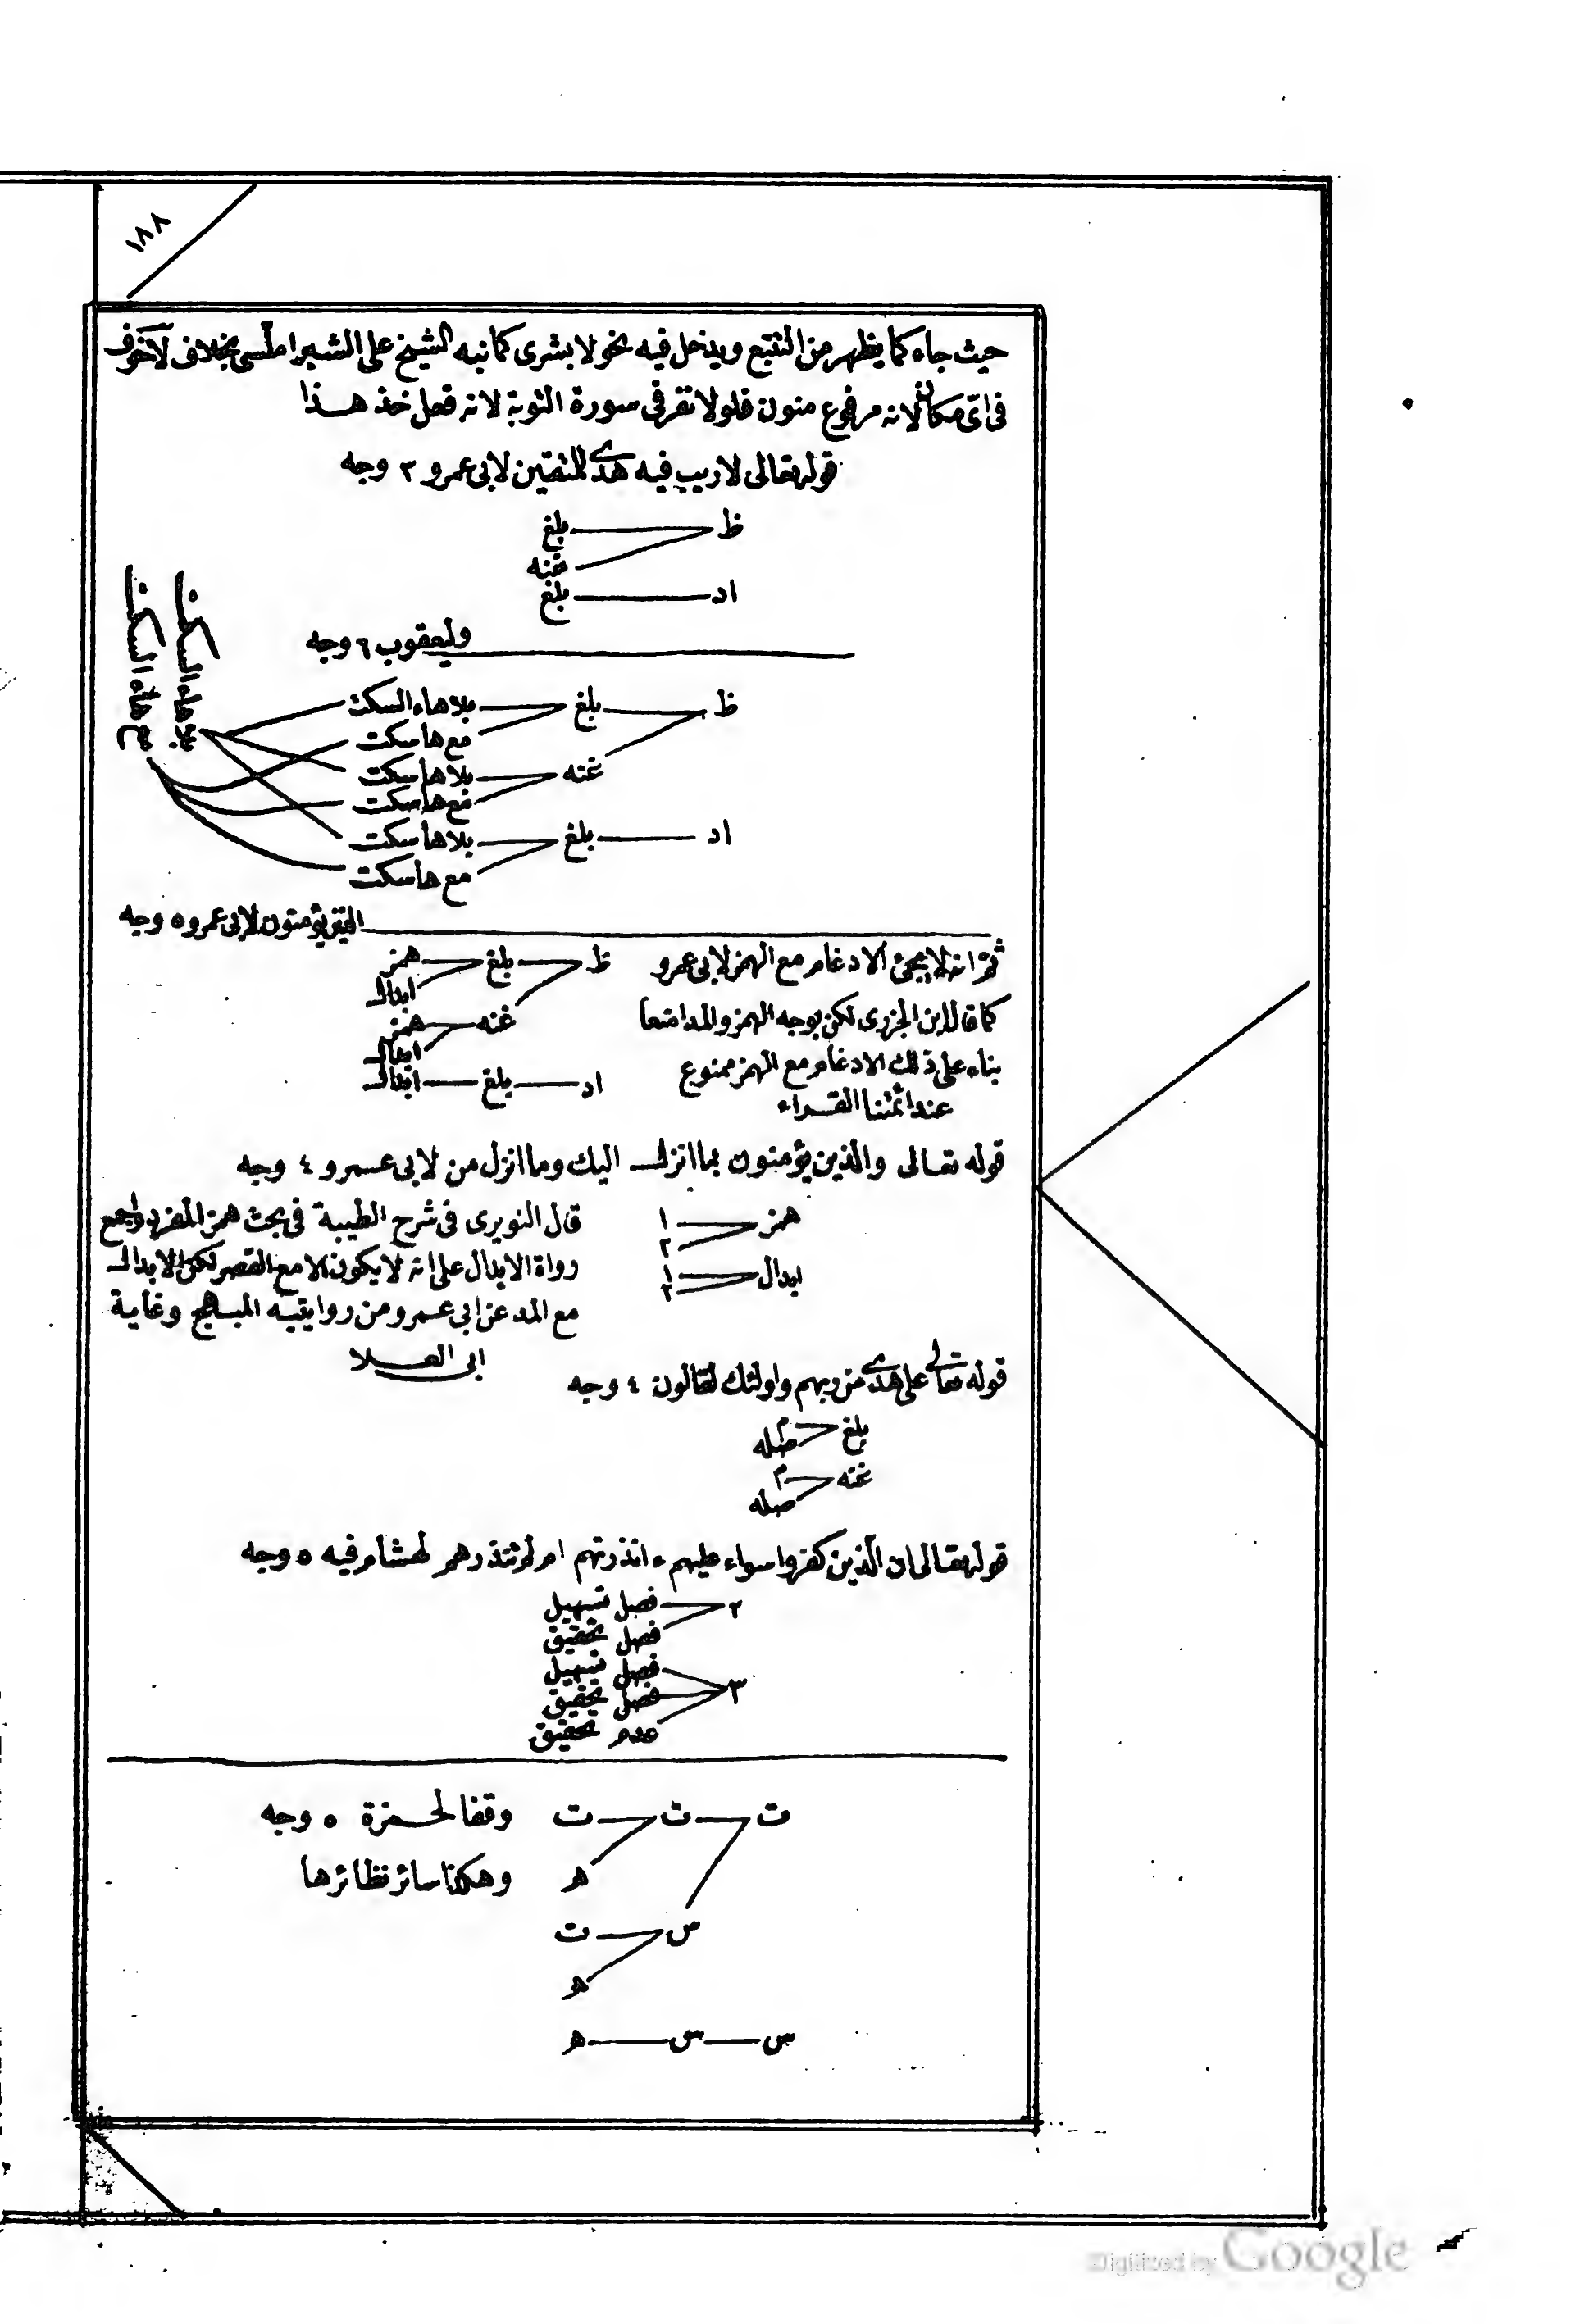 ١٨٨
حيث جاء كما يظهر من التتبع ويدخل فيه نحو لا بشرى كما نبه الشيخ على الشبراملسى بخلاف لا خوف
فى اى مكان لانه مرفوع منون فلولا نفر فى سورة التوبة لانه فعل خذ هذا
قوله تعالى لا ريب فيه هدى للمتقين لابى عمرو ٣ وجه
ظ بلغ
غنه
اد بلغ
وليعقوب ٦ وجه
ظ بلغ بلا هاء السكت
مع ها سكت
غنه بلا ها سكت
مع ها سكت
اد بلغ بلا ها سكت
مع ها سكت
بلا هاء السكت
مع هاء السكت
يؤمنون لابى عمرو ٥ وجه
ثم انه لا يجئ الادغام مع الهمز لابى عمرو
كما قال ابن الجزرى لكن بوجه الهمز والمد امنعا
بناء على ذلك الادغام مع الهمز ممنوع
عند ائمتنا القراء
ظ بلغ همز
ابدال
غنه همز
ابدال
اد بلغ ابدال
قوله تعالى والذين يؤمنون بما انزل اليك وما انزل من لابى عمرو ٤ وجه
همز ١
٢
ابدال ١
٢
قال النويرى فى شرح الطيبة فى بحث همز المفرد واجمع
رواة الابدال على انه لا يكون الا مع القصر لكن الابدال
مع المد عن ابى عمرو من روايتيه المبهج وغاية
ابى العلا
قوله تعالى على هدى من ربهم واولئك لقالون ٤ وجه
بلغ م
صله
غنه م
صله
قوله تعالى ان الذين كفروا سواء عليهم ءانذرتهم ام لم تنذرهم لهشام فيه ٥ وجه
٢ فصل تسهيل
فصل تحقيق
٣ فصل تسهيل
فصل تحقيق
عدم تحقيق
ت ت ت وقفا لحمزة ٥ وجه
ه وهكذا سائر نظائرها
س ت
ه
س س ه
Digitized by Google